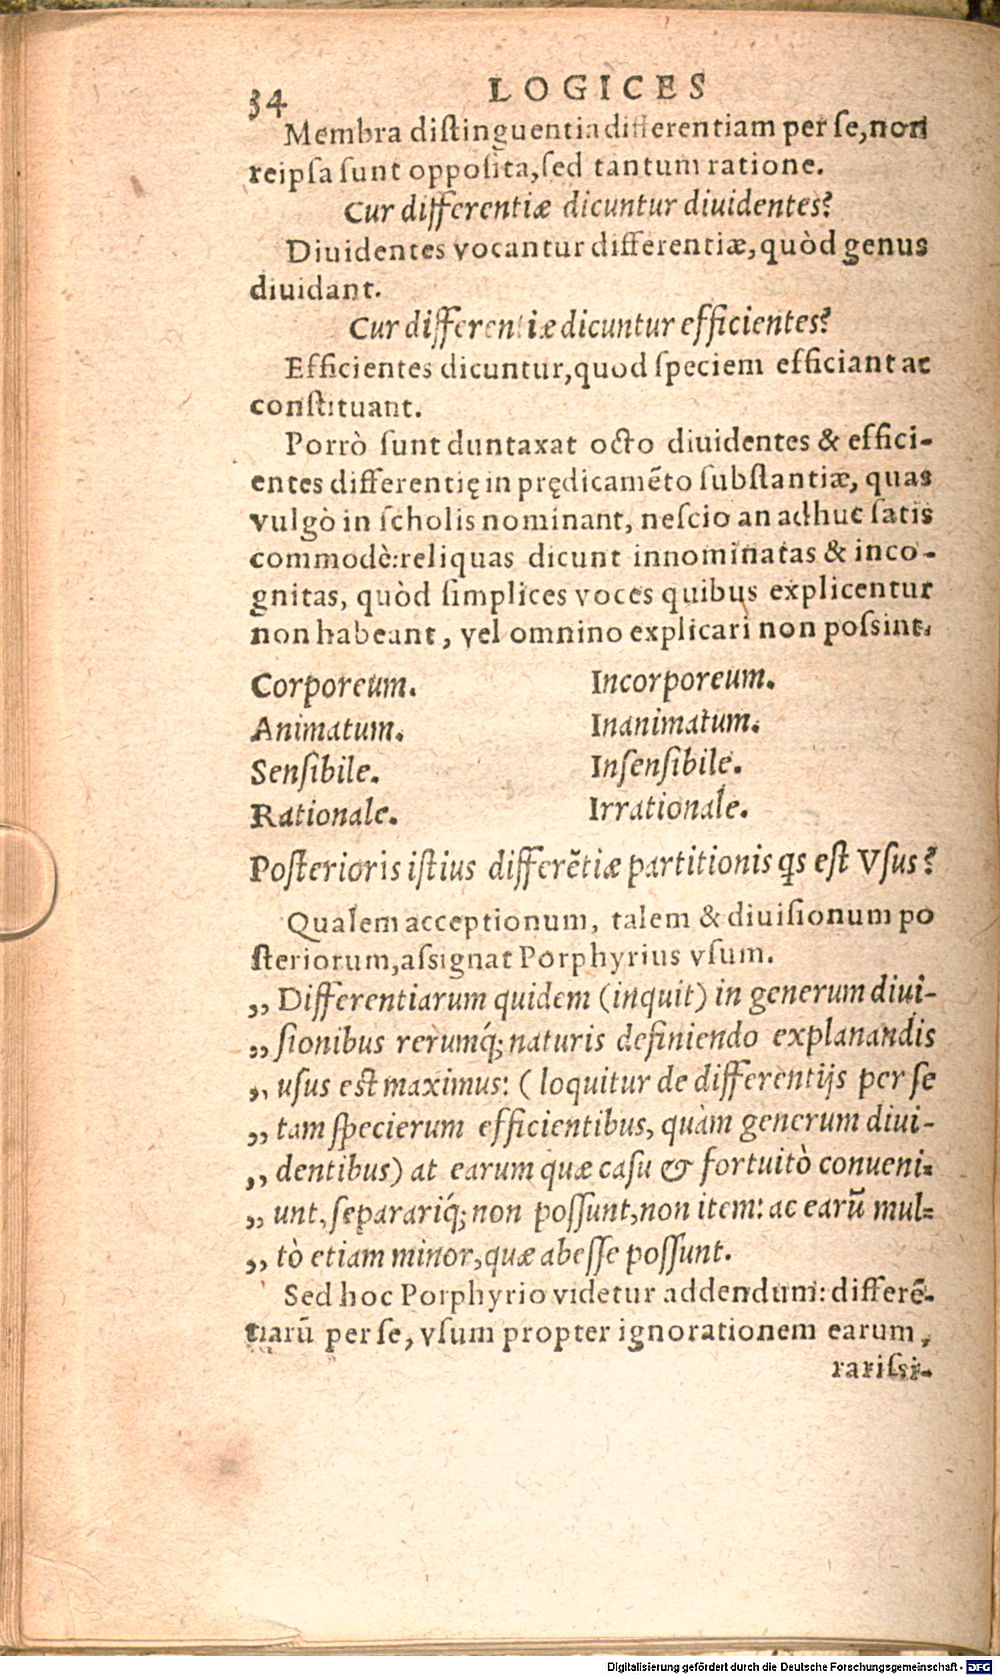 34
LOGICES
Membra distinguentia differentiam per se, non
reipsa sunt opposita, sed tantum ratione.
Cur differentiæ dicuntur diuidentes?
Diuidentes vocantur differentiæ, quòd genus
diuidant.
Cur differentiæ dicuntur efficientes?
Efficientes dicuntur, quod speciem efficiant ac
constituant.
Porrò sunt duntaxat octo diuidentes & effici-
entes differentię in prędicamẽto substantiæ, quas
vulgò in scholis nominant, nescio an adhuc satis
commodè: reliquas dicunt innominatas & inco-
gnitas, quòd simplices voces quibus explicentur
non habeant, vel omnino explicari non possint.
Corporeum. Incorporeum.
Animatum. Inanimatum.
Sensibile. Insensibile.
Rationale. Irrationale.
Posterioris istius differẽtiæ partitionis qs est Vsus?
Qualem acceptionum, talem & diuisionum po
steriorum, assignat Porphyrius vsum.
,, Differentiarum quidem (inquit) in generum diui-
,, sionibus rerumq́; naturis definiendo explanandis
,, usus est maximus: (loquitur de differentijs per se
,, tam specierum efficientibus, quàm generum diui-
,, dentibus) at earum quæ casu & fortuitò conueni-
,, unt, separariq́; non possunt, non item: ac earũ mul-
,, tò etiam minor, quæ abesse possunt.
Sed hoc Porphyrio videtur addendum: differẽ-
tiarũ per se, vsum propter ignorationem earum,
rarissi-
Digitalisierung gefördert durch die Deutsche Forschungsgemeinschaft - DFG